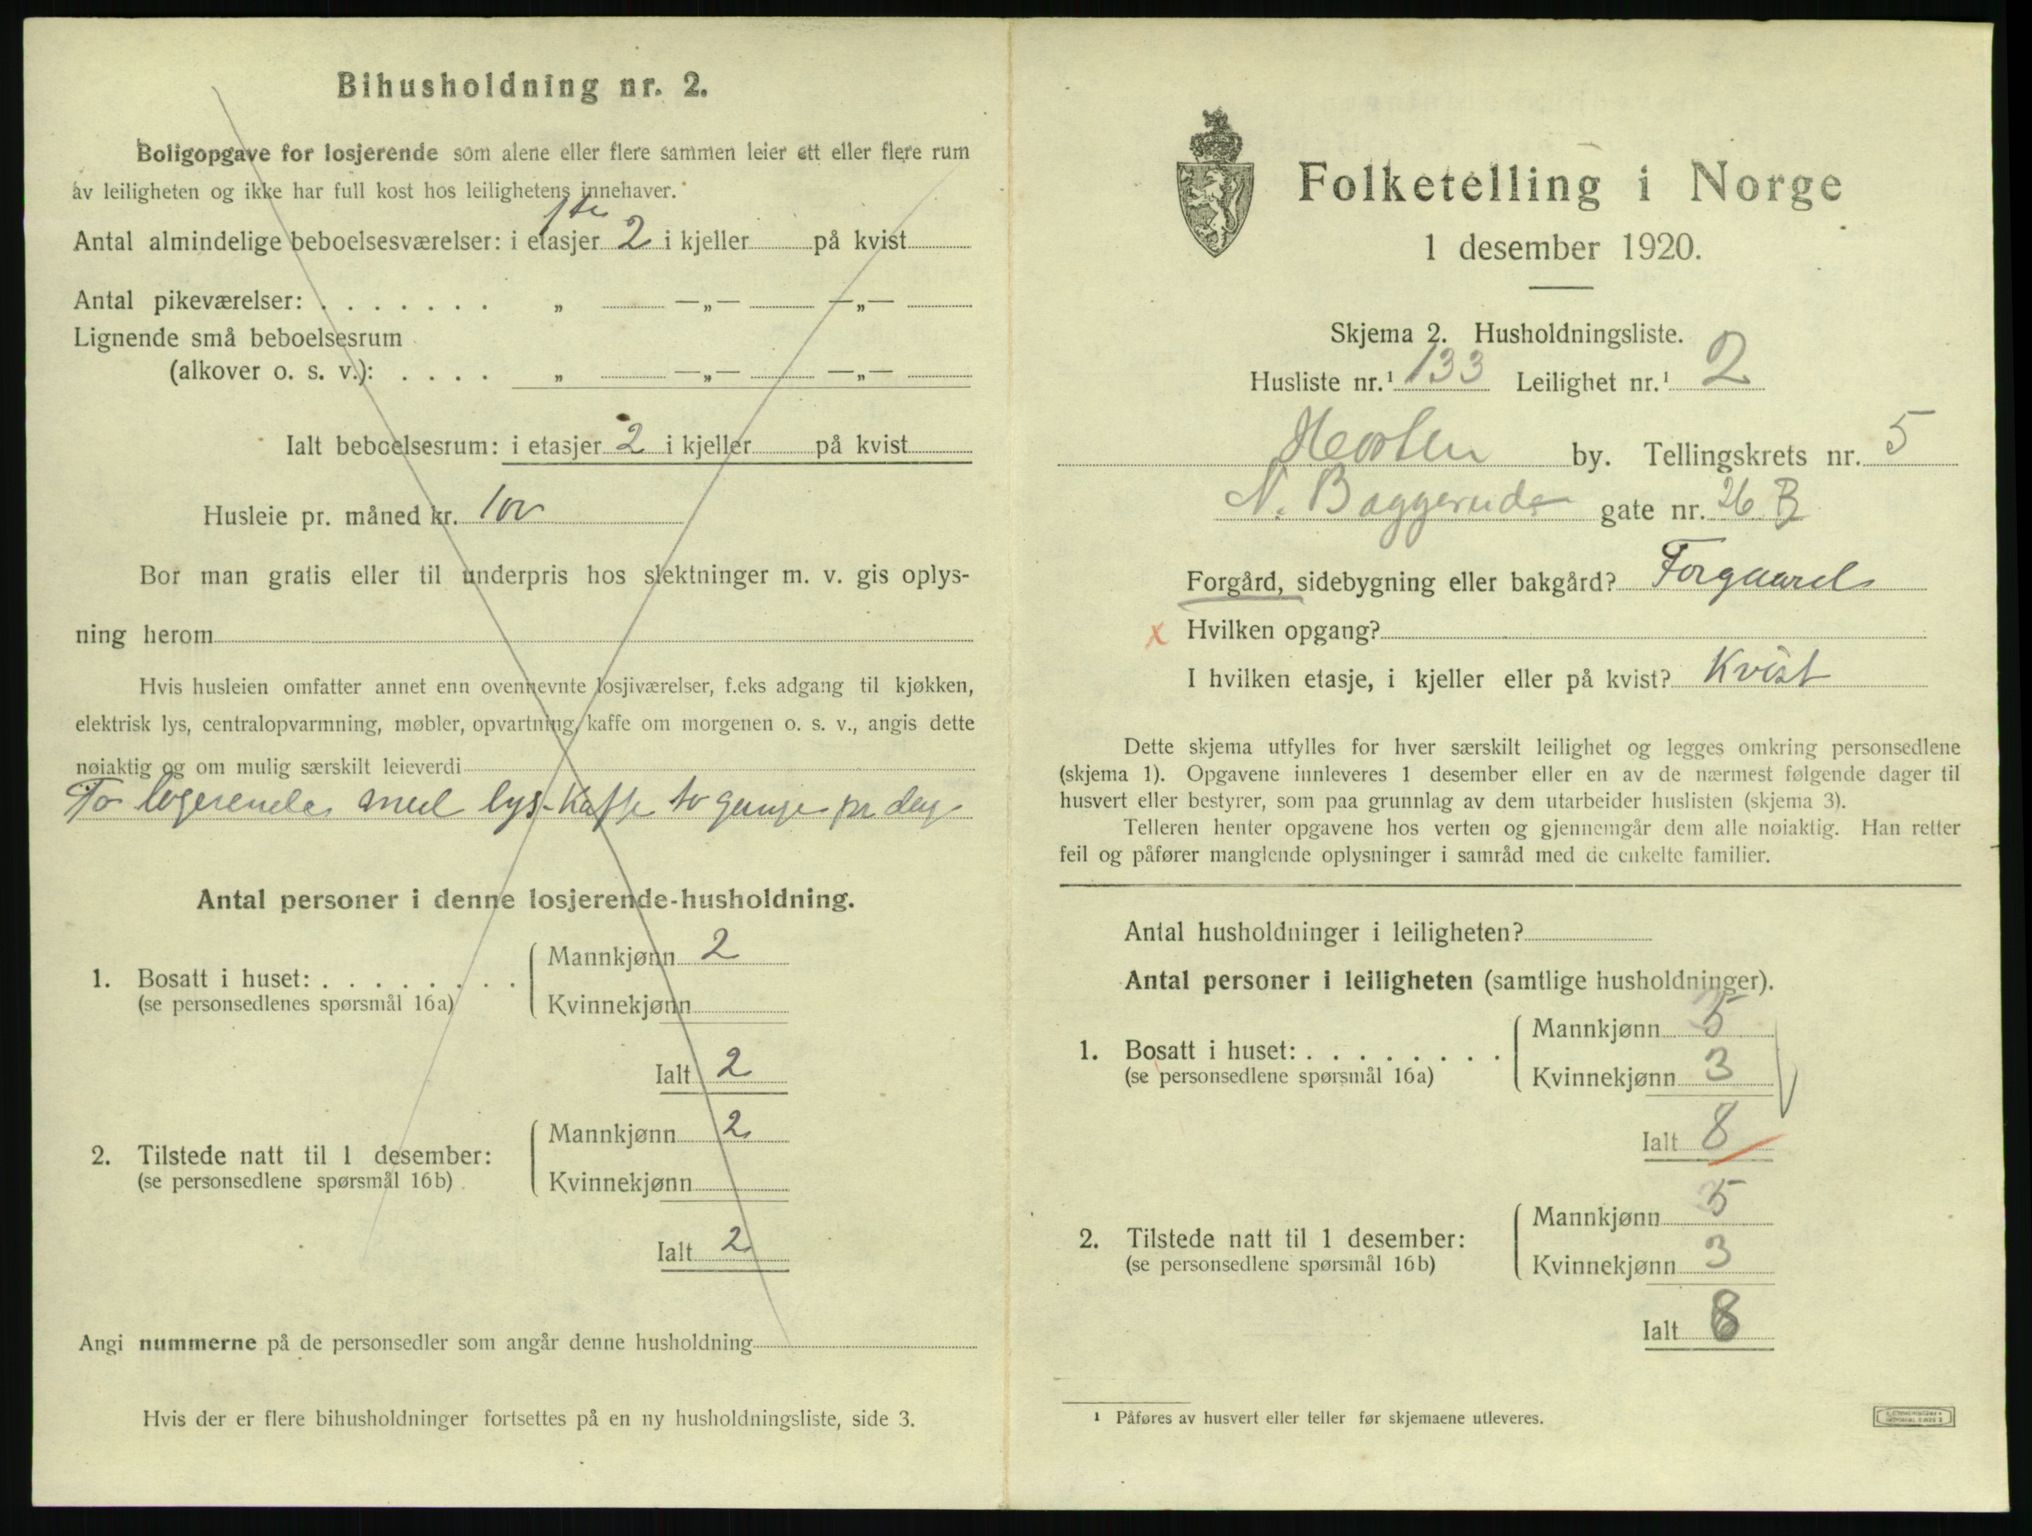 Bihusholdning nr. 2.
Boligopgave for losjerende som alene eller flere sammen leier ett eller flere rum
av leiligheten og ikke har full kost hos leilighetens innehaver.
1ste
Antal almindelige beboelsesværelser: i etasjer 2 i kjeller på kvist
Antal pikeværelser: . . . . . . . „ —„— —„—
Lignende små beboelsesrum
(alkover o. s. v.): . . . . „ —„— —„—
Ialt beboelsesrum: i etasjer 2 i kjeller på kvist
Husleie pr. måned kr. 100
Bor man gratis eller til underpris hos slektninger m. v. gis oplys-
ning herom
Hvis husleien omfatter annet enn ovennevnte losjiværelser, f.eks adgang til kjøkken,
elektrisk lys, centralopvarmning, møbler, opvartning, kaffe om morgenen o. s. v., angis dette
nøiaktig og om mulig særskilt leieverdi
To logerende med lys - Kaffe to gange pr dag
Antal personer i denne losjerende-husholdning.
1. Bosatt i huset: . . . . . . . . Mannkjønn 2
(se personsedlenes spørsmål 16a) Kvinnekjønn
Ialt 2
2. Tilstede natt til 1 desember: Mannkjønn 2
(se personsedlene spørsmål 16b) Kvinnekjønn
Ialt 2
Angi nummerne på de personsedler som angår denne husholdning
Hvis der er flere bihusholdninger fortsettes på en ny husholdningsliste, side 3.
Folketelling i Norge
1 desember 1920.
Skjema 2. Husholdningsliste.
Husliste nr.¹ 133 Leilighet nr.¹ 2
Horten by. Tellingskrets nr. 5
N. Baggeruds gate nr. 26 B
Forgård, sidebygning eller bakgård? Forgaard
x Hvilken opgang?
I hvilken etasje, i kjeller eller på kvist? Kvist
Dette skjema utfylles for hver særskilt leilighet og legges omkring personsedlene
(skjema 1). Opgavene innleveres 1 desember eller en av de nærmest følgende dager til
husvert eller bestyrer, som paa grunnlag av dem utarbeider huslisten (skjema 3).
Telleren henter opgavene hos verten og gjennemgår dem alle nøiaktig. Han retter
feil og påfører manglende oplysninger i samråd med de enkelte familier.
Antal husholdninger i leiligheten?
Antal personer i leiligheten (samtlige husholdninger).
1. Bosatt i huset: . . . . . . . . Mannkjønn 5
(se personsedlene spørsmål 16a) Kvinnekjønn 3
Ialt 8
2. Tilstede natt til 1 desember: Mannkjønn 5
(se personsedlene spørsmål 16b) Kvinnekjønn 3
Ialt 8
¹ Påføres av husvert eller teller før skjemaene utleveres.